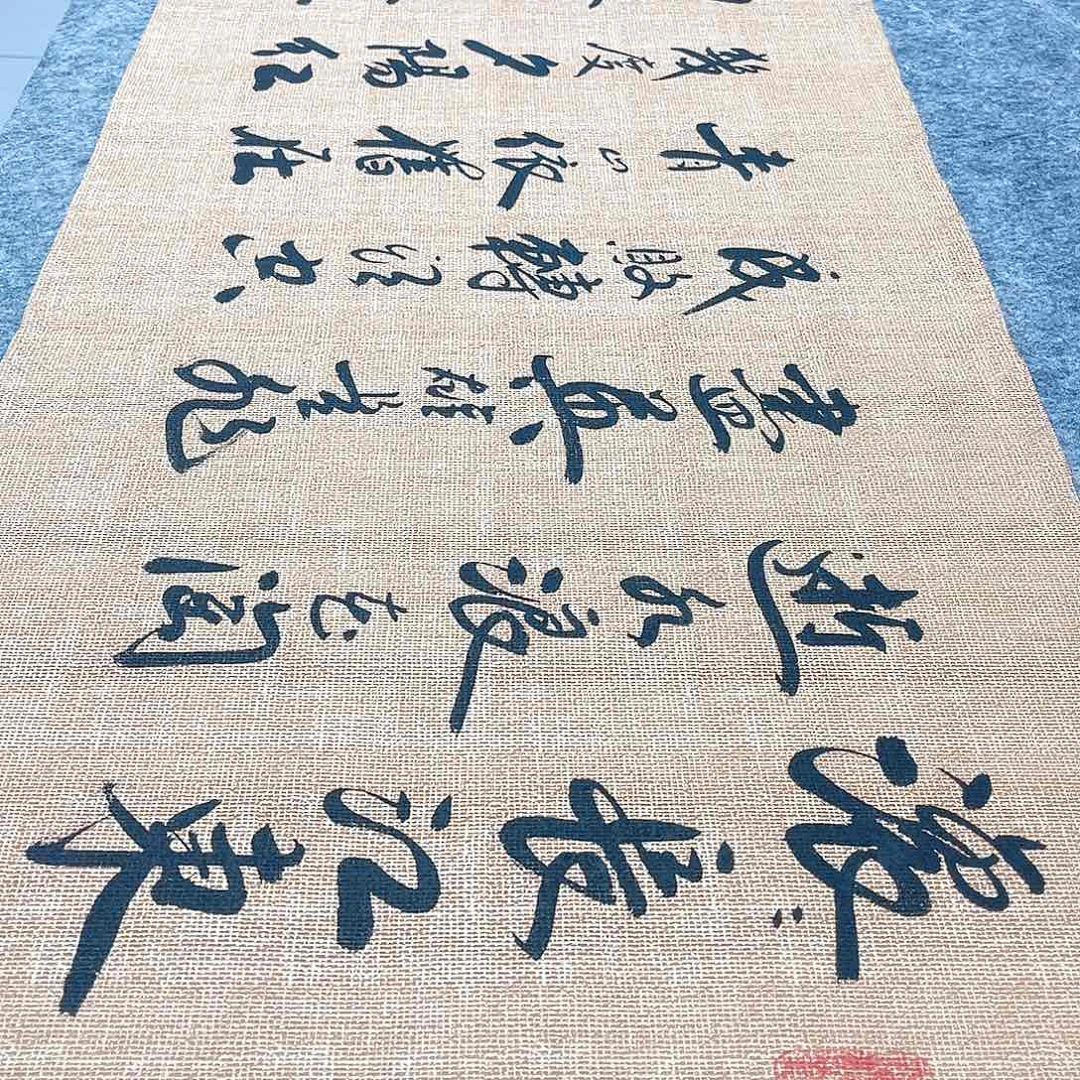 滚滚長江東
逝水浪花淘
盡英雄是非
成敗轉頭空
青山依舊在
幾度夕陽紅